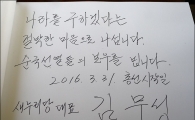 나라를 구하겠다는
절박한 마음으로 나섭니다.
순국선열들의 보우를 빕니다.
2016 3 31. 총선시작일
새누리당 대표 김무성